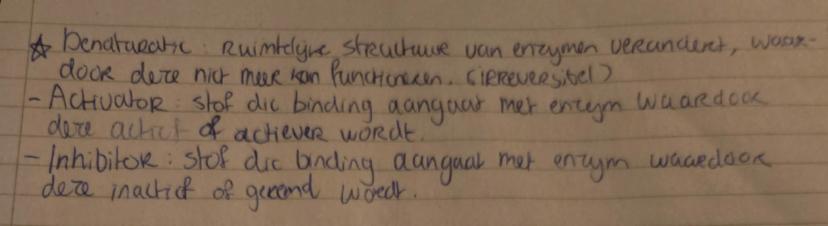 ☆ Denaturatie: Ruimtelijke structuur van enzymen verandert, waar-
door deze niet meer kan functioneren. (irreversibel)
- Activator: stof die binding aangaat met enzym waardoor
deze actief of actiever wordt.
- Inhibitor: stof die binding aangaat met enzym waardoor
deze inactief of geremd wordt.